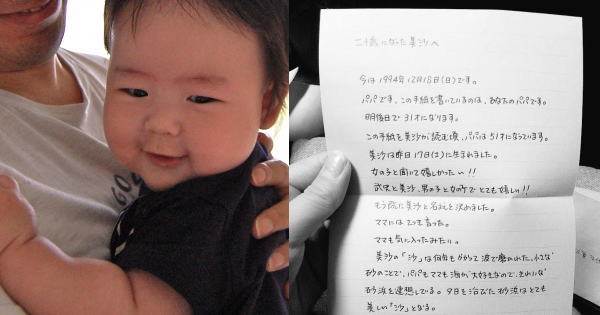 二十歳になった美沙へ
今は1994年12月18日(日)です。
パパです、この手紙を書いているのは、あなたのパパです。
明後日で31才になります。
この手紙を美沙が読む頃、パパは51才になっています。
美沙は昨日17日(土)に生まれました。
女の子と聞いて嬉しかったぃ!!
武史と美沙、男の子と女の子でとても嬉しい!!
もう前に美沙と名まえを決めました。
ママにはそう言った。
ママも気に入ったみたい。
美沙の「沙」は何百年もかかって波で磨かれた、小さな
砂のことで、パパもママも海が大好きなので、きれいな
砂浜を連想している。夕日を浴びた砂浜はとても
美しい「沙」となる。
GO